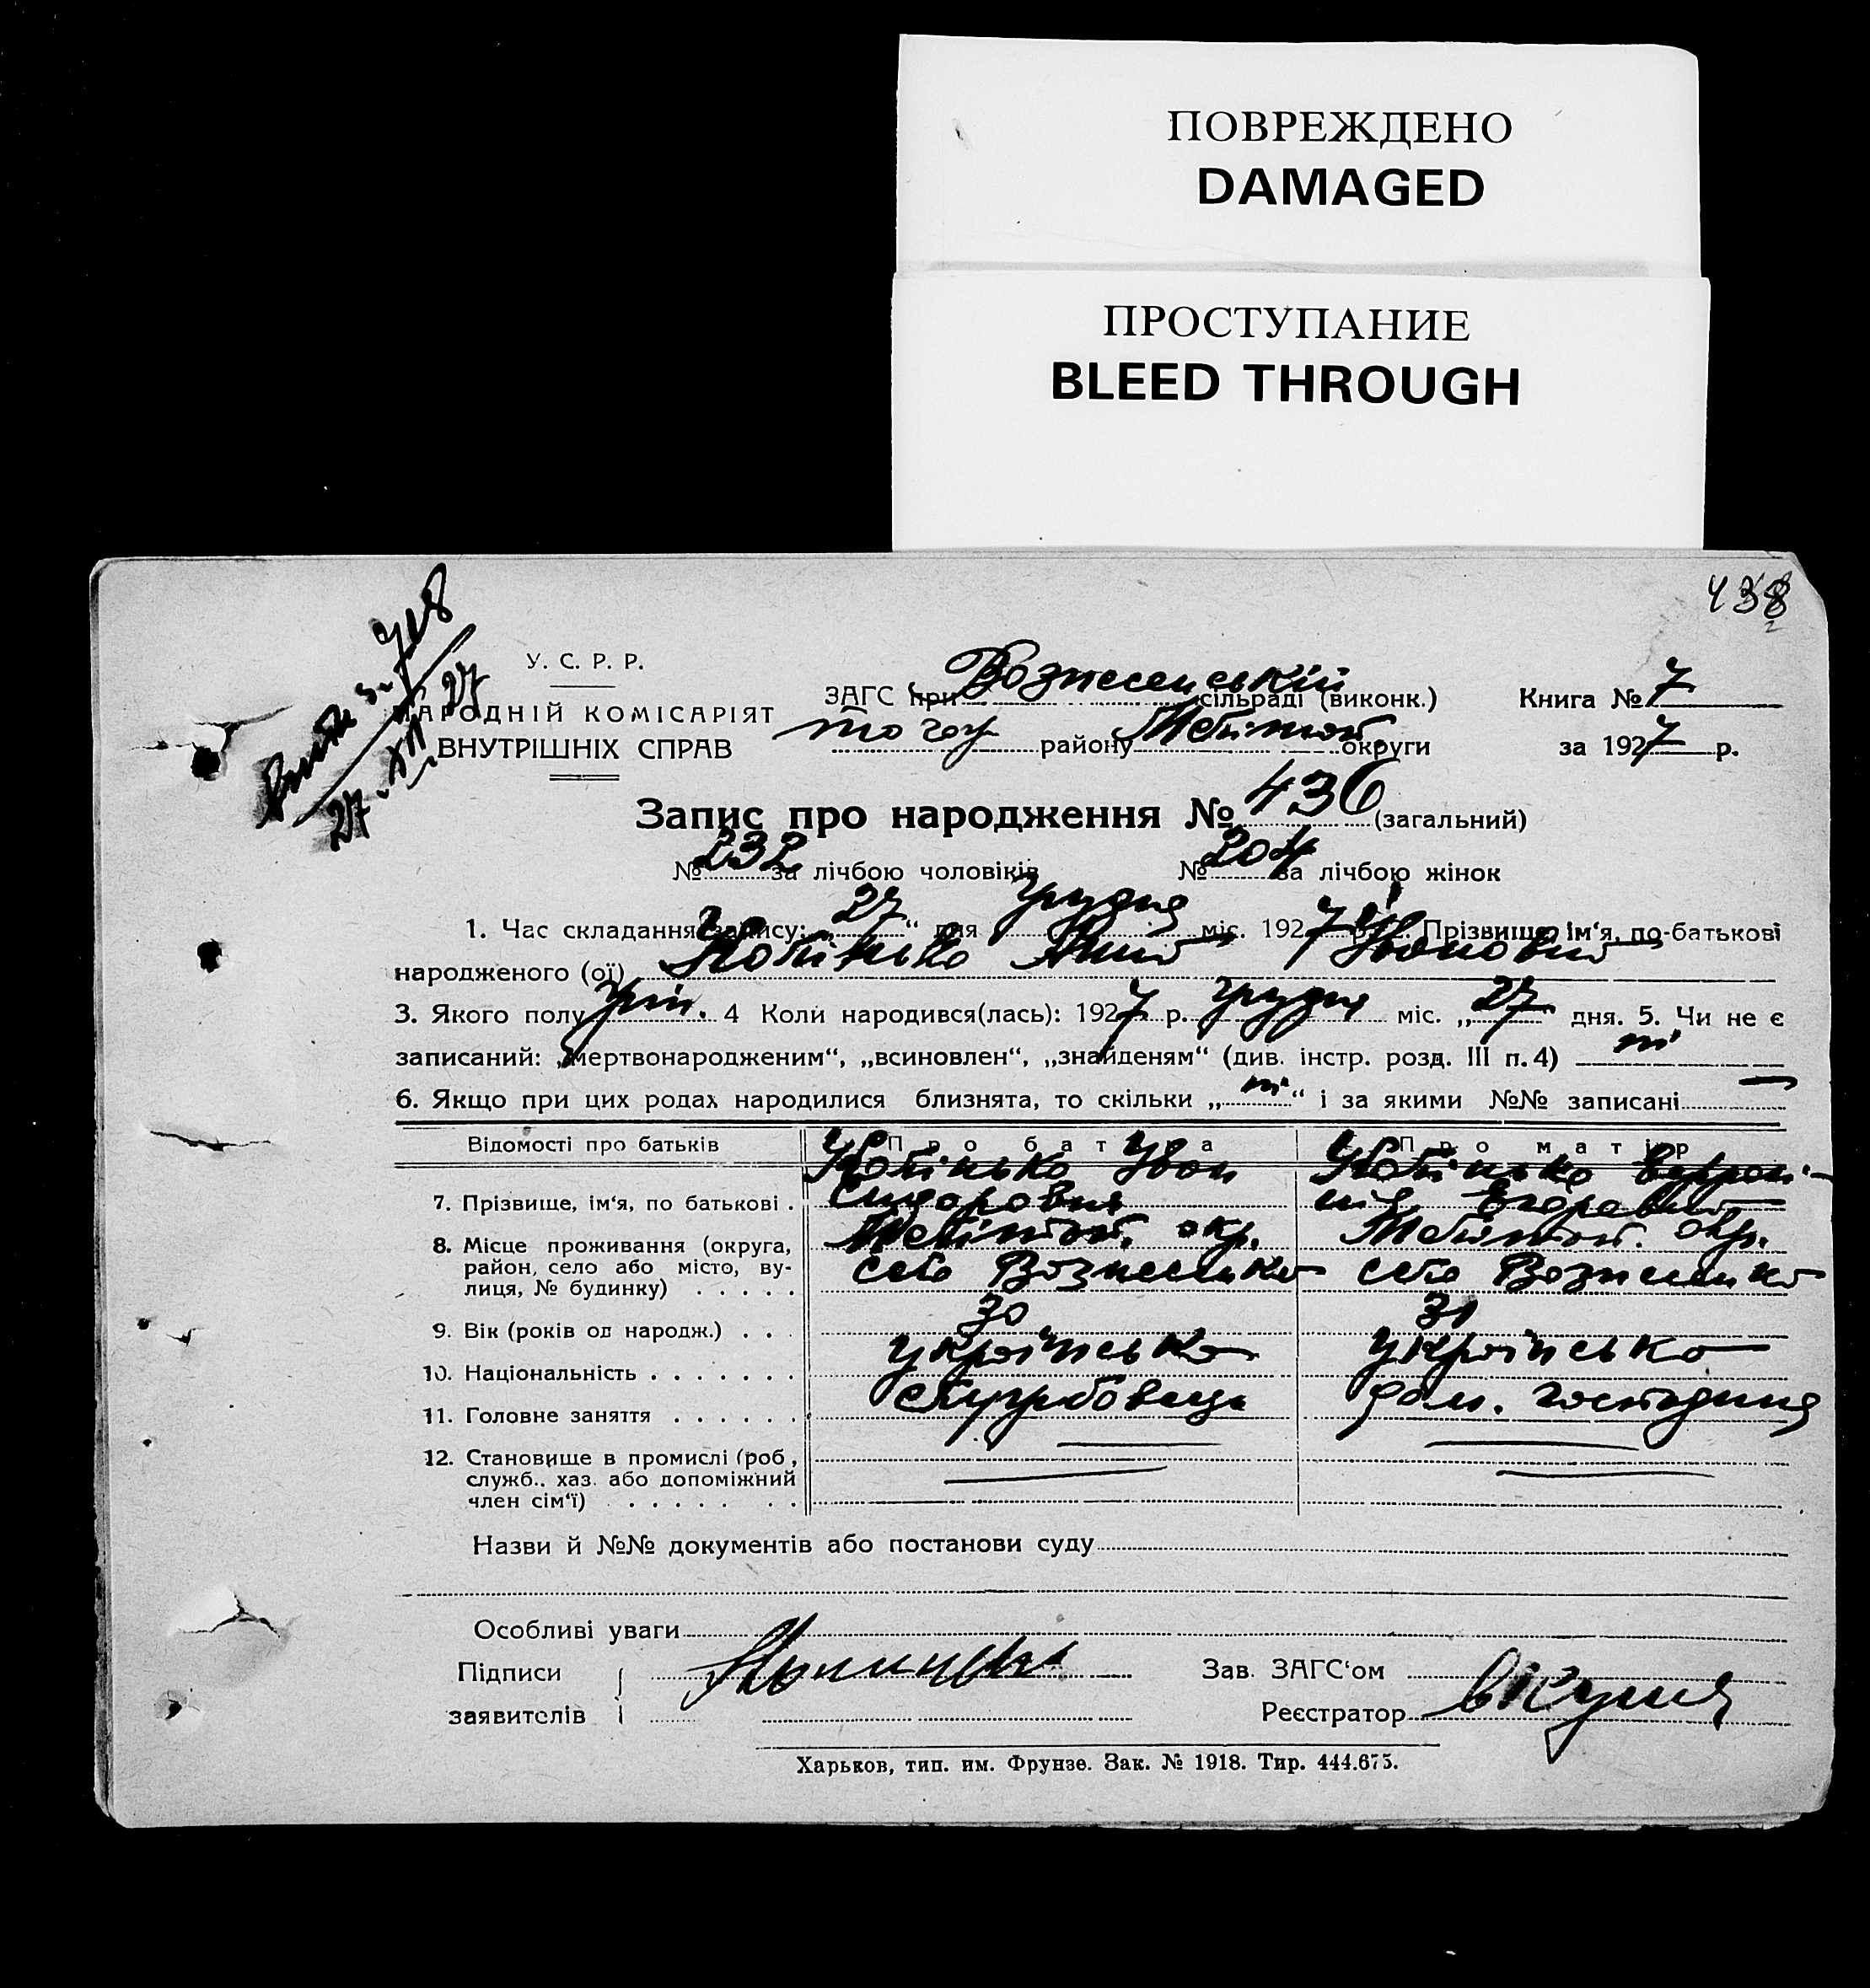 ПОВРЕЖДЕНО
DAMAGED
ПРОСТУПАНИЕ
BLEED THROUGH
438
718
27. XII 27
У. С. Р. Р.
НАРОДНІЙ КОМІСАРІЯТ
ВНУТРІШНІХ СПРАВ
ЗАГС при Вознесенській сільраді (виконк.)
Книга № 7
району Мелітоп. округи
за 1927 р.
Запис про народження № 436 (загальний)
№ 232 за лічбою чоловіків № 204 за лічбою жінок
1. Час складання запису: „27“ дня грудня міс. 1927 р. 2. Прізвище, ім‘я, по-батькові
народженого (ої) Івановна
3. Якого полу жін. 4 Коли народився(лась): 1927 р. грудня міс. „27“ дня. 5. Чи не є
записаний: „мертвонародженим“, „всиновлен“, „знайденям“ (див. інстр. розд. III п. 4) ні
6. Якщо при цих родах народилися близнята, то скільки „ні“ і за якими №№ записані —
Відомості про батьків
Про батька
Про матір
7. Прізвище, ім‘я, по батькові . Іван
Сидорович
8. Місце проживання (округа,
район, село або місто, ву-
лиця, № будинку) . . . . .
Мелітоп. окр.
село Вознесенка
Мелітоп. окр.
село Вознесенка
9. Вік (років од народж.) . . . 30 31
10. Національність . . . . . . . українська українська
11. Головне заняття . . . . . . службовець дом. господиня
12. Становище в промислі (роб,
служб., хаз. або допоміжний
член сім‘ї) . . . . . . .
Назви й №№ документів або постанови суду
Особливі уваги
Підписи
заявителів
Зав. ЗАГС‘ом
Реєстратор
Харьков, тип. им. Фрунзе. Зак. № 1918. Тир. 444.675.